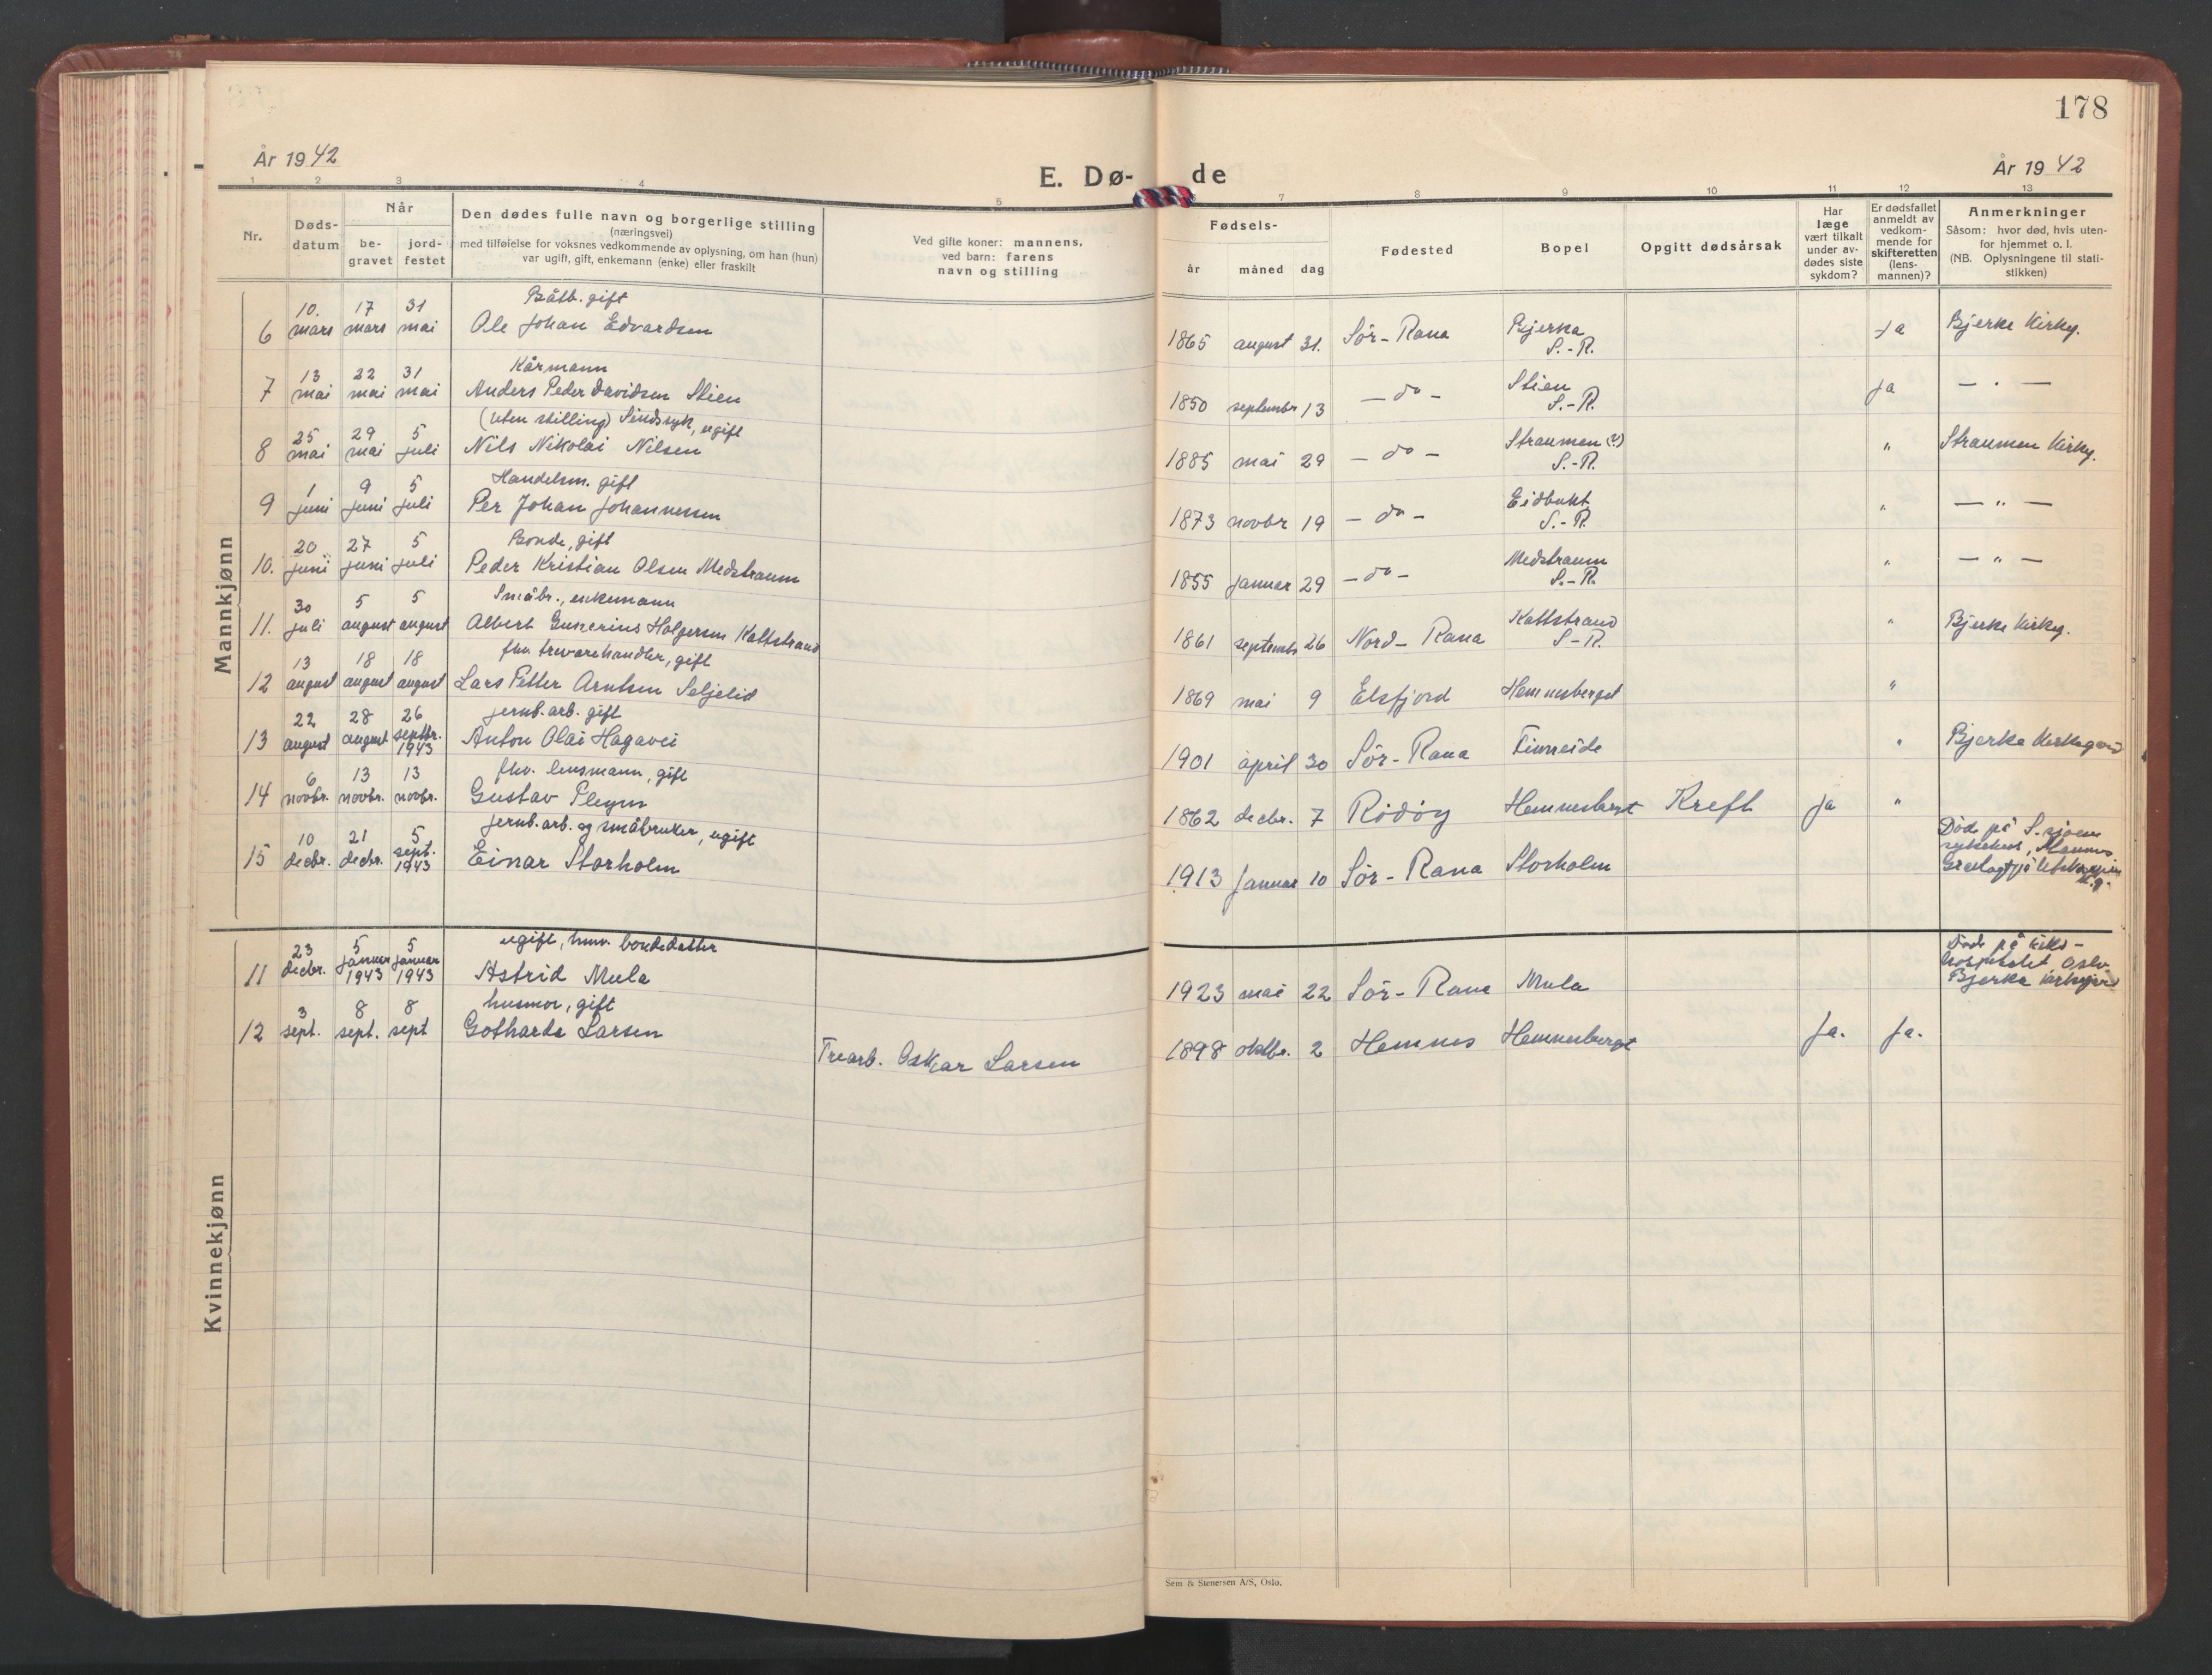 178
År 1942
E. Dø-
de
År 1942
1 2 3 4 5 7 8 9 10 11 12 13
Nr.
Døds-
datum
Når
be-
gravet
jord-
festet
Den dødes fulle navn og borgerlige stilling
(næringsvei)
med tilføielse for voksnes vedkommende av oplysning, om han (hun)
var ugift, gift, enkemann (enke) eller fraskilt
Ved gifte koner: mannens,
ved barn: farens
navn og stilling
Fødsels-
år måned dag
Fødested
Bopel
Opgitt dødsårsak
Har
læge
vært tilkalt
under av-
dødes siste
sykdom?
Er dødsfallet
anmeldt av
vedkom-
mende for
skifteretten
(lens-
mannen)?
Anmerkninger
Såsom: hvor død, hvis uten-
for hjemmet o. l.
(NB. Oplysningene til stati-
stikken)
Mannkjønn
10. 17 31 Båtb. gift
6 mars mars mai Ole Johan Edvardsen 1865 august 31. Sör-Rana Bjerka S.-R. Ja Bjerke Kirkg.
13 22 31 Kårmann
7 mai mai mai Anders Peder Davidsen Stien 1850 septembr 13 — do — Stien S.-R. Ja — " —
25 29 5 (uten stilling) Sindssyk, ugift
8 mai mai juli Nils Nikolai Nilsen 1885 mai 29 — do — Straumen (?) S.-R. " Straumen Kirkg.
1 9 5 Handelsm. gift
9 juni juni juli Per Johan Johannessen 1873 novbr 19 — do — Eidbukt S.-R. " — " —
20 27 5 Bonde, gift
10. juni juni juli Peder Kristian Olsen Medstraum 1855 januar 29 — do — Medstraum S.-R. " — " —
30 5 5 Småbr., enkemann
11. juli august august Albert Gunerius Holgersen Kattstrand 1861 septembr 26 Nord-Rana Kattstrand S-R. " Bjerke Kirkg.
13 18 18 fhv. trevarehandler, gift
12 august august august Lars Petter Arntsen Seljelid 1869 mai 9 Elsfjord Hemnesberget "
22 28 26 jernb. arb. gift
13 august august septbr. 1943 Anton Olai Hagavei 1901 april 30 Sör-Rana Finneide " Bjerka Kirkegård
6 13 13 fhv. lensmann, gift
14 novbr. novbr. novbr. Gustav Pleym 1862 decbr. 7 Rödöy Hemnesberget Kreft Ja "
10 21 5 jernb. arb. og småbruker, ugift
15 decbr. decbr. sept. 1943 Einar Storholm 1913 Januar 10 Sör-Rana Storholm
Död på S.sjoen
sykehus,
Kvinnekjønn
23 5 5 ugift, bondedatter
11 decbr. januar 1943 januar 1943 Astrid Mula 1923 mai 22 Sör-Rana Mula
Död på Riks-
hospitalet Oslo
Bjerka kirkegård
3 8 8 husmor, gift
12 sept. sept. sept Gotharda Larsen Trearb. Oskar Larsen 1898 oktbr. 2 Hemnes Hemnesberget Ja. Ja.
Sem & Stenersen A/S, Oslo.